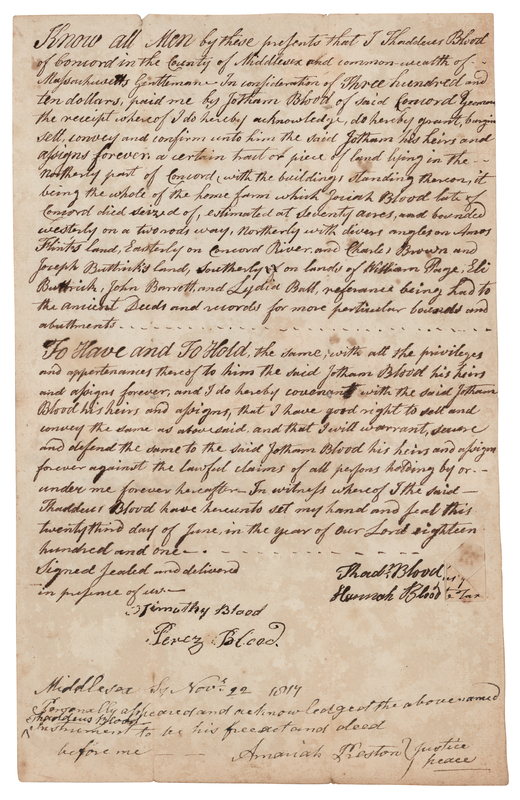 Know all Men by these presents that I Thaddeus Blood
of Concord in the County of Middlesex and common-wealth of -
Massachusetts Gentleman - In consideration of Three hundred and
ten dollars, paid me by Jotham Blood of said Concord Yeoman
the receipt whereof I do hereby acknowledge, do hereby grant, bargain
sell, convey and confirm unto him the said Jotham his heirs and
assigns forever, a certain tract or piece of land lying in the - -
Northerly part of Concord, with the buildings standing thereon, it
being the whole of the home farm which Josiah Blood late of
Concord died seized of, estimated at seventy acres, and bounded
westerly on a two rods way, Northerly with divers angles on Amos
Flint's land, Easterly on Concord River, and Charles Brown and
Joseph Buttrick's land, Southerly on lands of William Page, Eli
Buttrick, John Barrett, and Lydia Ball, referance being had to
the ancient Deeds and records for more perticular bounds and
abuttments
To Have and To Hold, the same, with all the privileges
and appertenances thereof to him the said Jotham Blood his heirs
and assigns forever, and I do hereby covenant with the said Jotham
Blood his heirs and assigns, that I have good right to sell and
convey the same as above said, and that I will warrant, secure
and defend the same to the said Jotham Blood his heirs and assigns
forever against the lawful claims of all persons holding by or - -
under me forever hereafter - In witness whereof I the said -
Thaddeus Blood have hereunto set my hand and seal this
twenty third day of June, in the year of our Lord eighteen
hundred and one -
Signed sealed and delivered
in presence of us -
Thads. Blood
Hannah Blood
Timothy Blood
Perez Blood.
Middlesex Ss Novr. 22 1814
Personally appeared and acknowledged the above named
Thaddeus Blood
instrument to be his free act and deed
before me - Amariah Preston Justice
peace